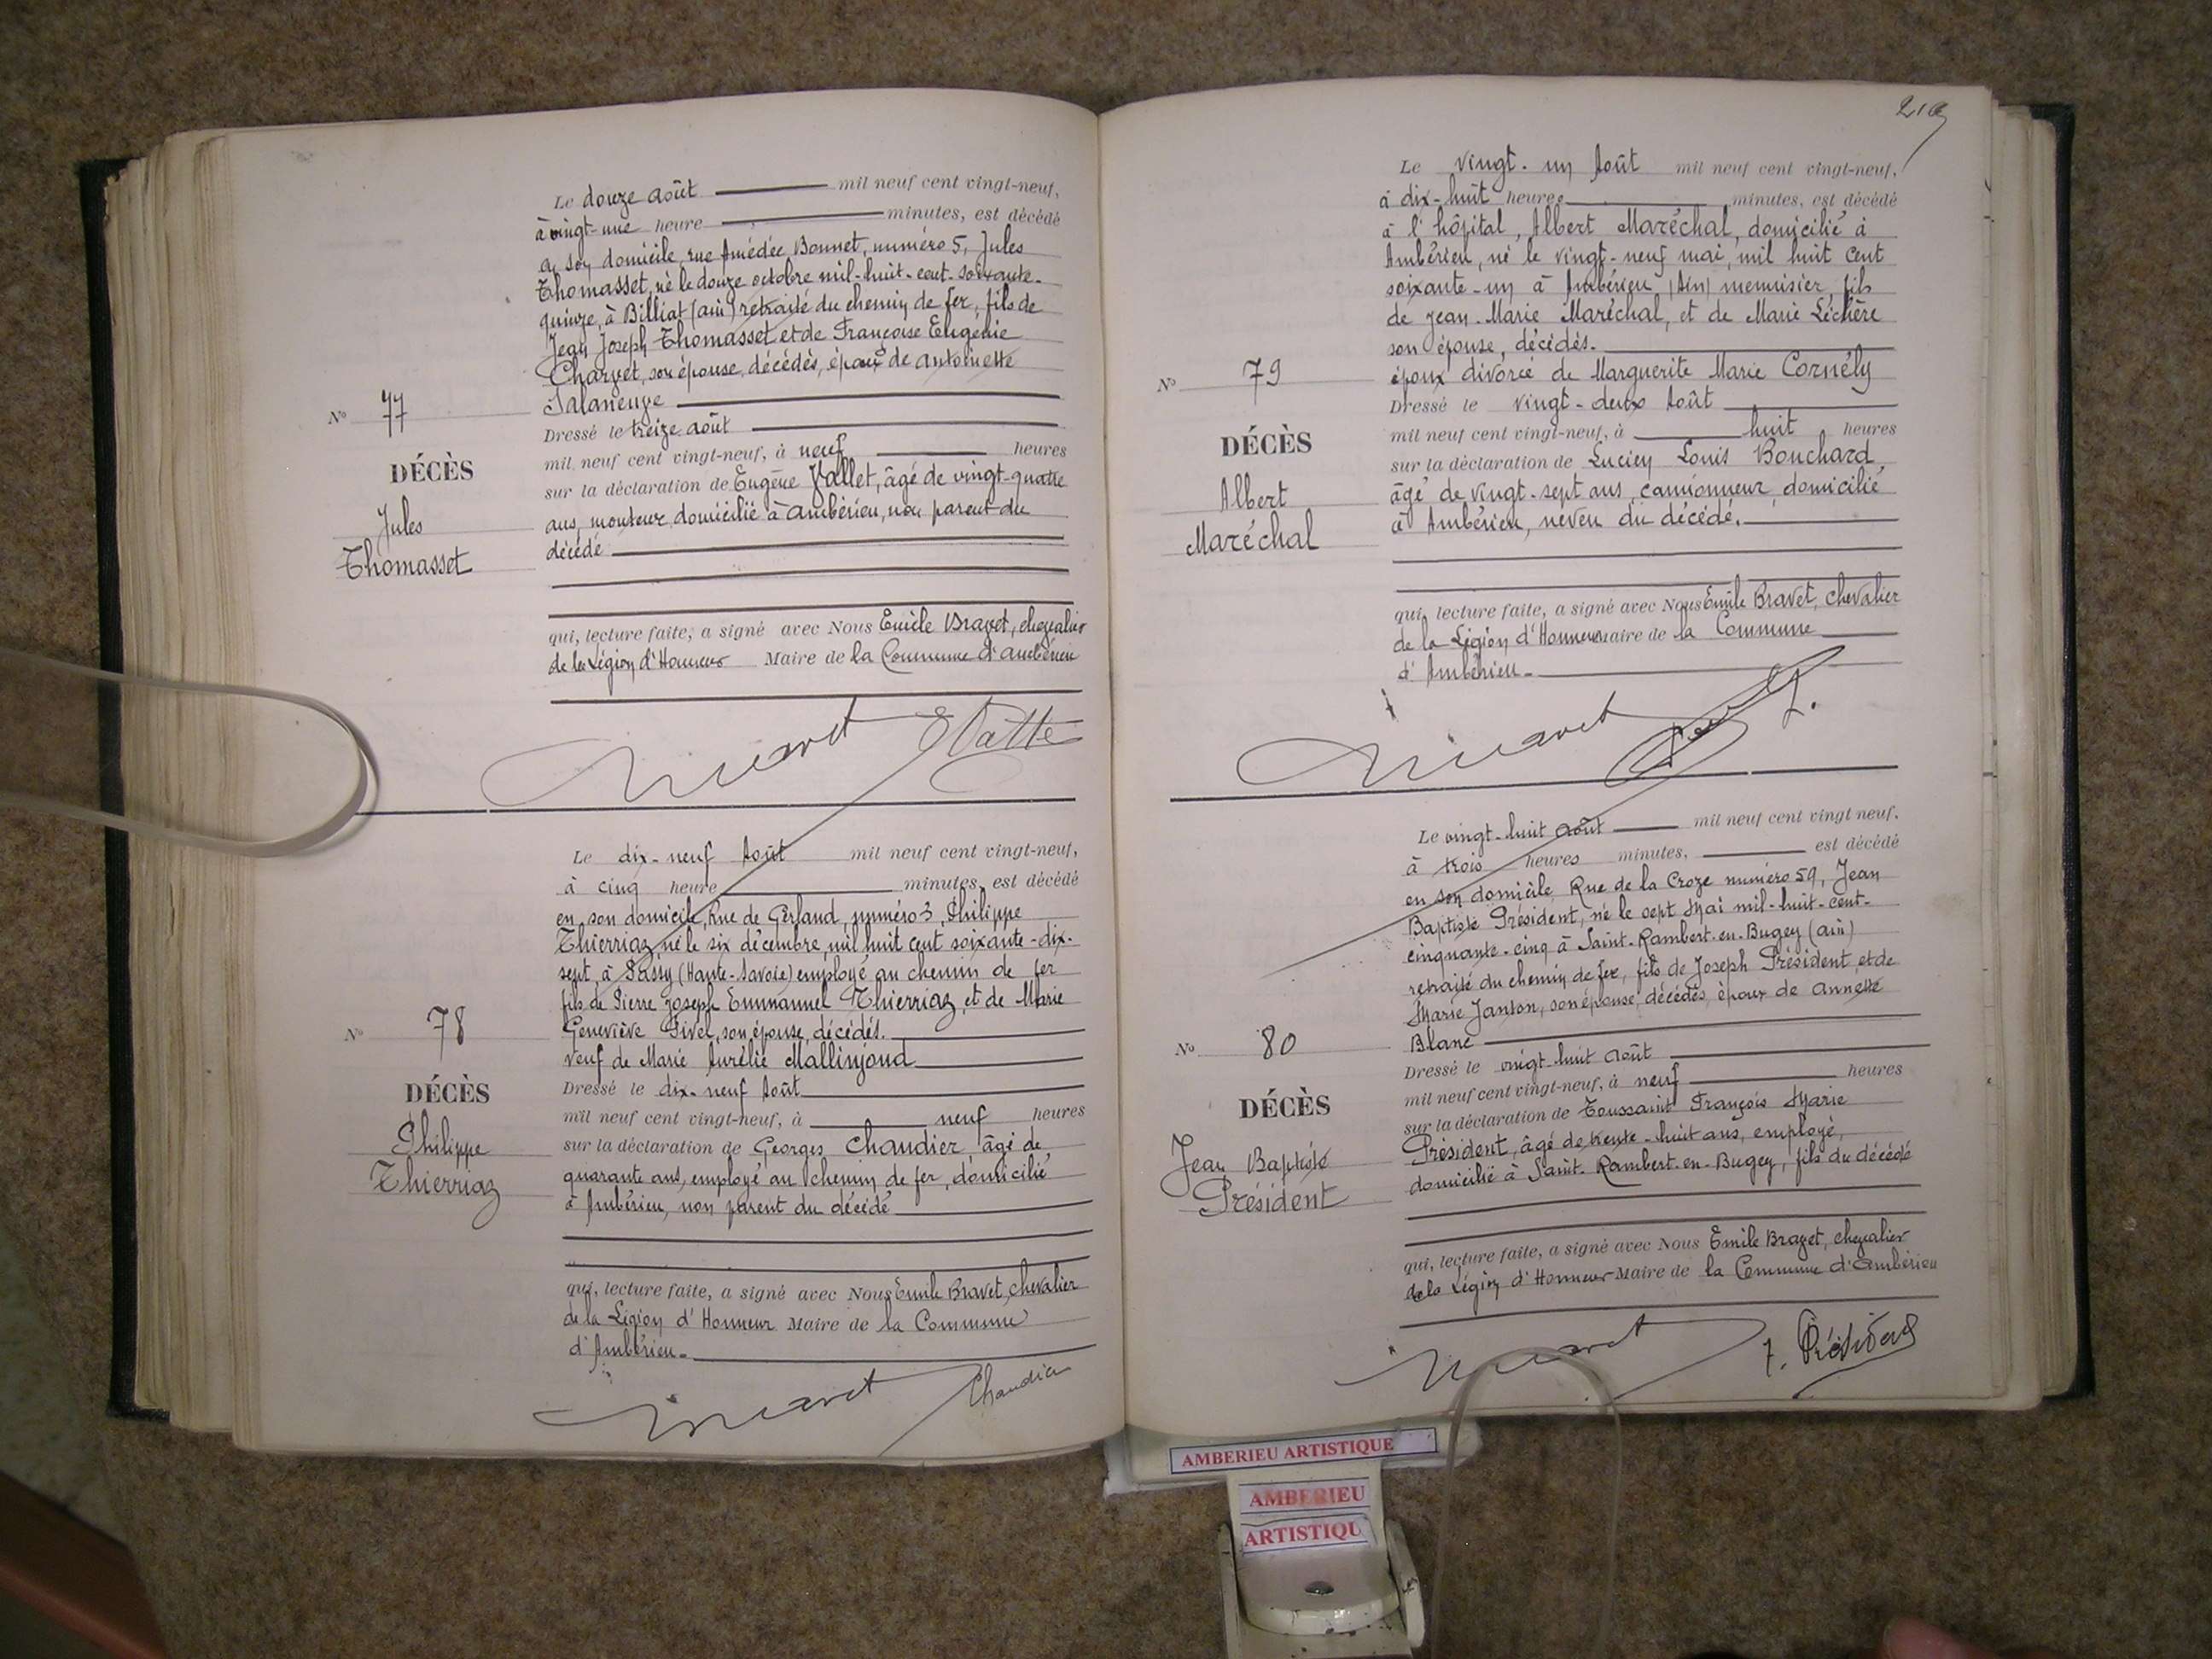 Le douze août mil neuf cent vingt-neuf,
à vingt-une heure minutes, est décédé
en son domicile, rue Amédée Bonnet, numéro 5, Jules
Thomasset, né le douze octobre mil-huit-cent-soixante-
quinze, à Billiat (ain) retraité du chemin de fer, fils de
Jean Joseph Thomasset et de Françoise Eugénie
Charvet, son épouse, décédés, époux de Antoinette
Salaneuze
Nº 77
Dressé le treize août
mil neuf cent vingt-neuf, à neuf heures
DÉCÈS
sur la déclaration de Eugène Vallet, âgé de vingt-quatre
Jules
ans, monteur, domicilié à Ambérieu, non parent du
Thomasset
décédé
qui, lecture faite, a signé avec Nous Emile Bravet, chevalier
de la Légion d'Honneur Maire de la Commune d'Ambérieu
Le dix-neuf Août mil neuf cent vingt-neuf,
à cinq heure minutes, est décédé
en son domicile, Rue de Gerland, numéro 3, Philippe
Thierriaz né le six décembre, mil huit cent soixante-dix-
sept, à Passy (Haute-Savoie) employé au chemin de fer
fils de Pierre Joseph Emmanuel Thierriaz, et de Marie
Nº 78
Geneviève Pivel, son épouse, décédés.
veuf de Marie Aurélie Mallinjoud
DÉCÈS
Dressé le dix-neuf Août
mil neuf cent vingt-neuf, à neuf heures
Philippe
sur la déclaration de Georges Chaudier, âgé de
Thierriaz
quarante ans, employé au chemin de fer, domicilié
à Ambérieu, non parent du décédé
qui, lecture faite, a signé avec Nous Emile Bravet, chevalier
de la Légion d'Honneur Maire de la Commune
d'Ambérieu.
Chaudier
Le vingt-un Août mil neuf cent vingt-neuf,
à dix-huit heures minutes, est décédé
à l'hôpital, Albert Maréchal, domicilié à
Ambérieu, né le vingt-neuf mai, mil huit cent
soixante-un à Ambérieu (Ain) menuisier, fils
de Jean-Marie Maréchal, et de Marie Léchère
son épouse, décédés.
Nº 79
époux divorcé de Marguerite Marie Cornély
Dressé le vingt-deux Août
DÉCÈS
mil neuf cent vingt-neuf, à huit heures
sur la déclaration de Lucien Louis Bouchard,
Albert
âgé de vingt-sept ans, camionneur, domicilié
Maréchal
à Ambérieu, neveu du décédé.
qui, lecture faite, a signé avec Nous Emile Bravet, chevalier
de la Légion d'Honneur Maire de la Commune
d'Ambérieu.
Le vingt-huit août mil neuf cent vingt neuf.
à trois heures minutes, est décédé
en son domicile, Rue de la Croze numéro 59, Jean
Baptiste Président, né le sept Mai mil-huit-cent-
cinquante-cinq à Saint-Rambert-en-Bugey (ain)
retraité du chemin de fer, fils de Joseph Président, et de
Marie Janton, son épouse, décédés, époux de Annette
Nº 80
Blanc
Dressé le vingt-huit août
DÉCÈS
mil neuf cent vingt-neuf, à neuf heures
sur la déclaration de Toussaint François Marie
Jean Baptiste
Président, âgé de trente-huit ans, employé,
Président
domicilié à Saint-Rambert-en-Bugey, fils du décédé
qui, lecture faite, a signé avec Nous Emile Bravet, chevalier
de la Légion d'Honneur Maire de la Commune d'Ambérieu
AMBERIEU ARTISTIQUE
AMBERIEU
ARTISTIQU